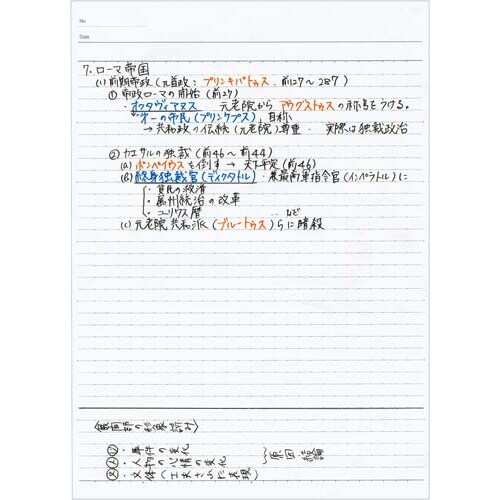 No.
Date
7. ローマ帝国
(1) 前期帝政(元首政:プリンキパトゥス 前27〜287)
① 帝政ローマの開始(前27)
・オクタヴィアヌス 元老院からアウグストゥスの称号をうける。
・オーの市民(プリンケプス)自称
→ 共和政の伝統(元老院)尊重・実際は独裁政治
② カエサルの独裁(前46〜前44)
(a) ポンペイウスを倒す → 天下平定(前46)
(b) 終身独裁官(ディクタトル)・最高軍指令官(インペラトル)に
・貧民の救済
・属州統治の改革
・ユリウス暦 など
(c) 元老院共和派(ブルートゥス)らに暗殺
・事件の変化
・人物の心情の変化
・文体(工夫された表現)
原因 結論